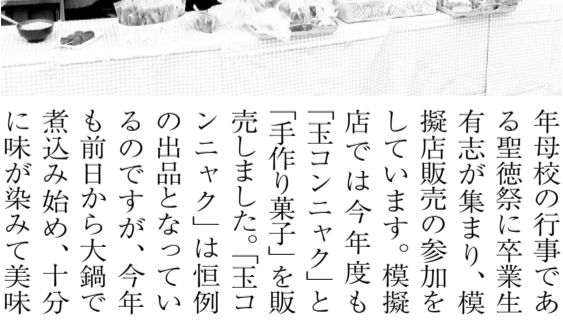 年母校の行事であ
る聖徳祭に卒業生
有志が集まり、模
擬店販売の参加を
しています。模擬
店では今年度も
「玉コンニャク」と
「手作り菓子」を販
売しました。「玉コ
ンニャク」は恒例
の出品となってい
るのですが、今年
も前日から大鍋で
煮込み始め、十分
に味が染みて美味